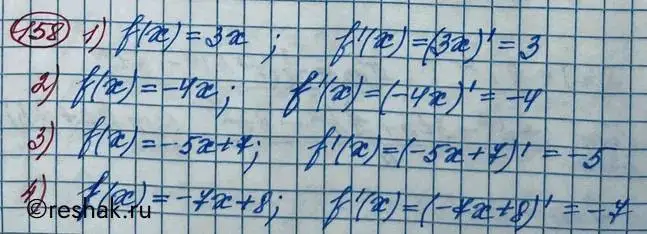 158 1) f(x) = 3x ; f'(x) = (3x)' = 3
2) f(x) = -4x; f'(x) = (-4x)' = -4
3) f(x) = -5x+7; f'(x) = (-5x+7)' = -5
4) f(x) = -7x+8; f'(x) = (-7x+8)' = -7
©reshak.ru